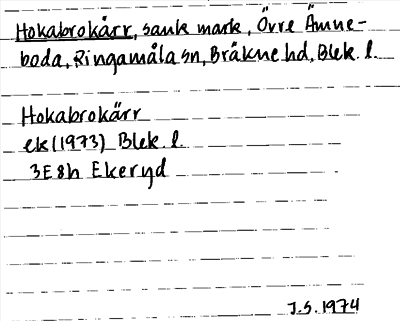 Hokabrokärr, sank mark, Övre Ämne-
boda, Ringamåla sn, Bräkne hd, Blek. l.
Hokabrokärr
ek (1973) Blek. l.
3E8h Ekeryd
J.S. 1974